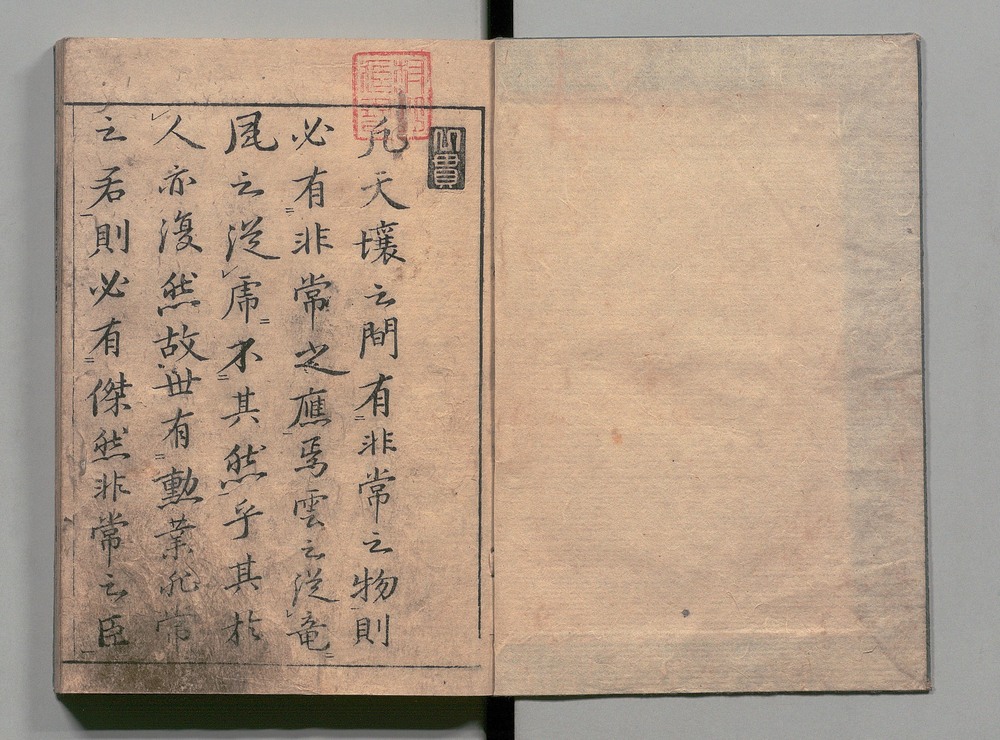 凡天壤之間有非常之物則
必有非常之應焉雲之從竜
風之從虎不其然乎其於
人亦復然故世有勳業非常
之君則必有傑然非常之臣